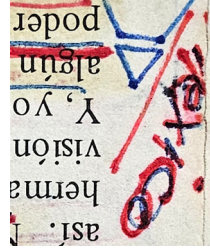 así:
herma
visión
Y, yo
algún
poder